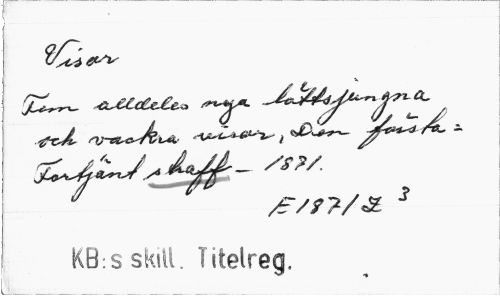 Visor
Fem alldeles nya lättsjungna
och vackra visor, Den första =
Förtjänt straff - 1871.
E 1871 Z 3
KB:s skill. Titelreg.